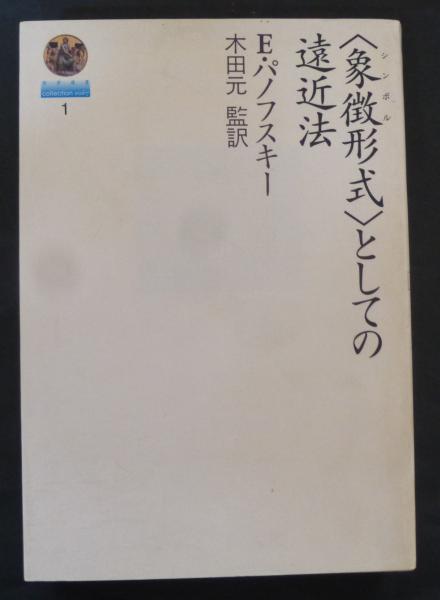 〈象徴形式〉としての
シンボル
遠近法
E・パノフスキー
木田元 監訳
collection
1